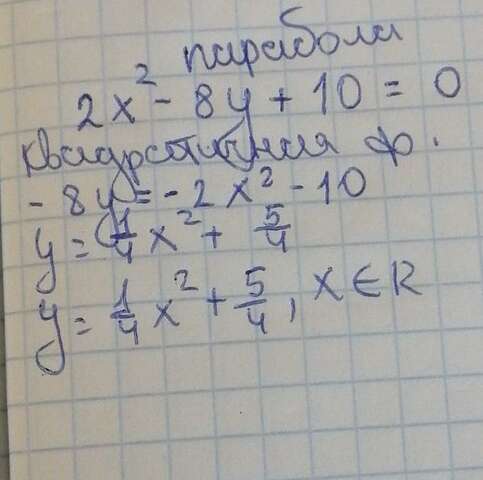 парабола
2x² - 8y + 10 = 0
квадратичная ф.
- 8y = - 2x² - 10
y = 1/4 x² + 5/4
y = 1/4 x² + 5/4, x ∈ R